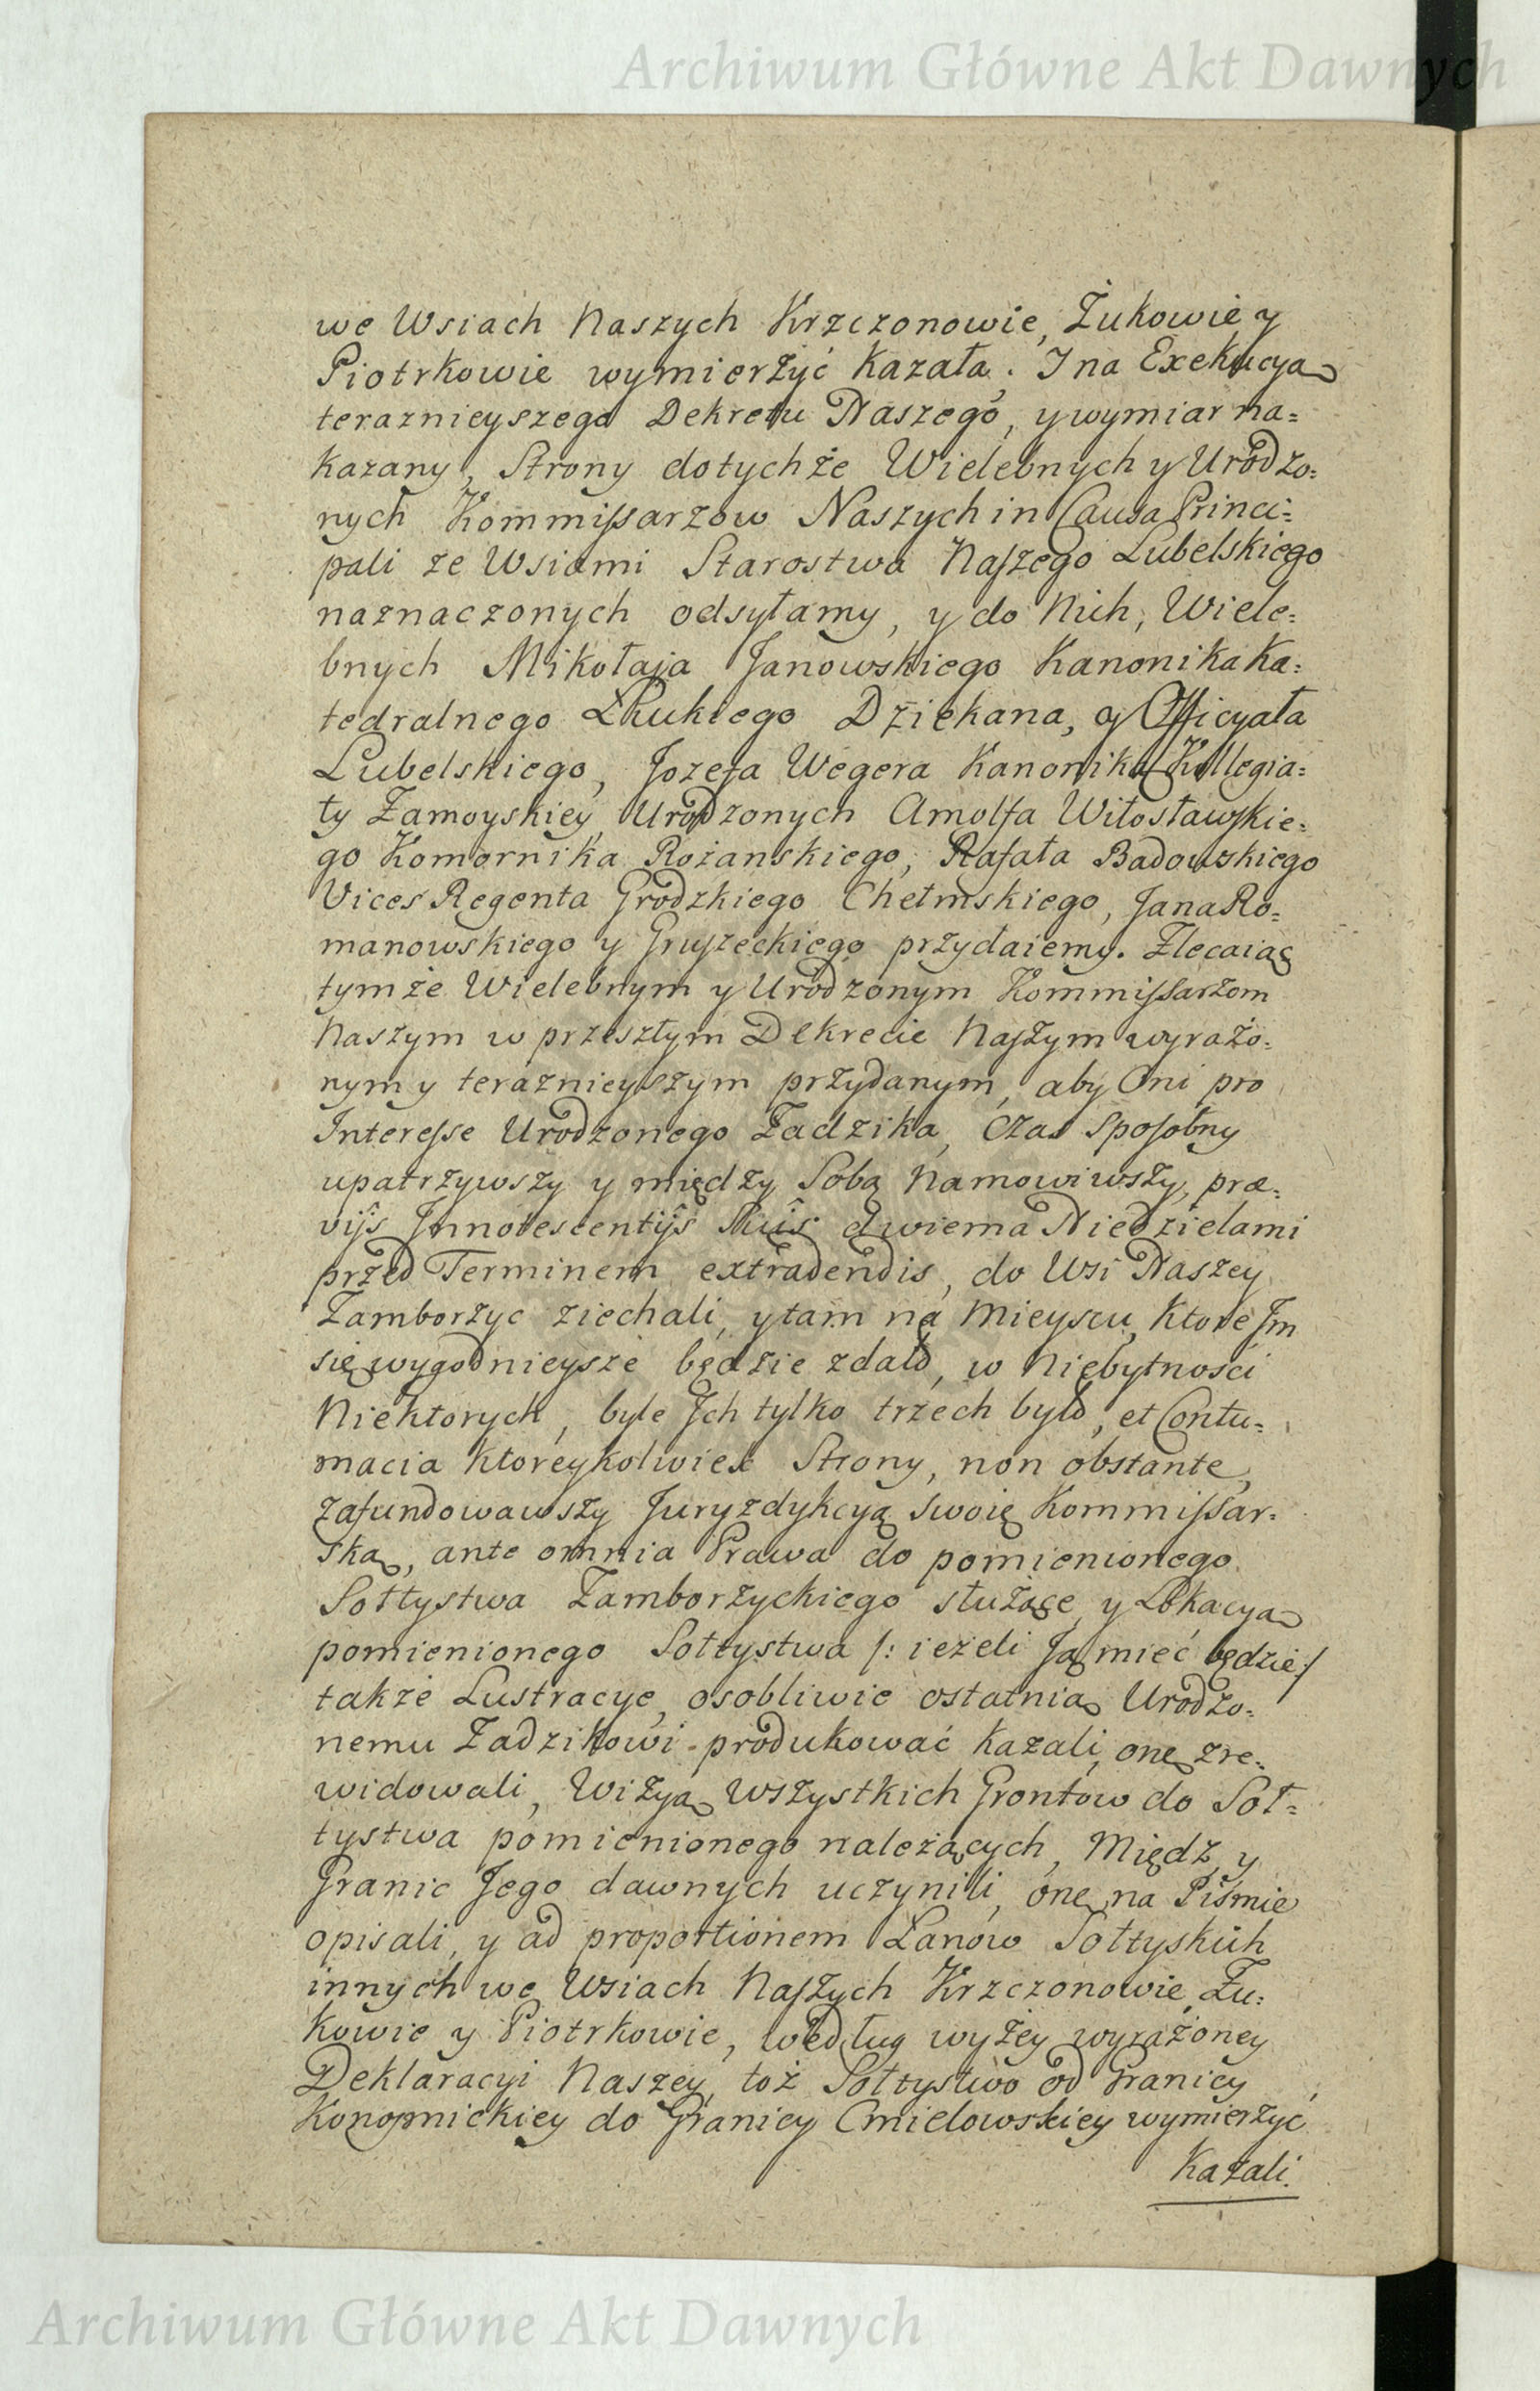 Archiwum Główne Akt Dawnych
we Wsiach Naszych Krzczonowie, Żukowie y
Piotrkowie wymierzyć kazała. I na Exekucyą
teraznieyszego Dekretu Naszego, y wymiar na=
kazany, Strony do tychże Wielebnych y Urodzo=
nych Kommissarzow Naszych in Causa Princi=
pali ze Wsiami Starostwa Naszego Lubelskiego
naznaczonych odsyłamy, y do Nich, Wiele=
bnych Mikołaja Janowskiego Kanonika Ka=
tedralnego Dziekana, y Officyała
Lubelskiego, Jozefa Wegera Kanonika Kollegia=
ty Zamoyskiey, Urodzonych Arnolfa Witosławskie=
go Komornika Rożanskiego, Rafała Badowskiego
Vices Regenta Grodzkiego Chełmskiego, Jana Ro=
manowskiego y przydaiemy. Zlecaiąc
tymże Wielebnym y Urodzonym Kommissarzom
Naszym w przeszłym Dekrecie Naszym wyrażo=
nym y teraznieyszym przydanym, aby Oni pro
Interesse Urodzonego Zadzika, czas sposobny
upatrzywszy y między Sobą namowiwszy, præ=
vijs Innotescentijs Suis dwiema Niedzielami
przed Terminem extradendis, do Wsi Naszey
Zamborzyc ziechali, y tam na Mieyscu, ktore Jm
się wygodnieysze będzie zdało, w niebytności
Niektorych, byle Jch tylko trzech było, et Contu=
macia ktoreykolwiek Strony, non obstante,
zafundowawszy Juryzdykcyą swoię Kommissar=
ską, ante omnia Prawa do pomienionego
Sołtystwa Zamborzyckiego służące, y Lokacyą
pomienionego Sołtystwa /: ieżeli Ją mieć będzie :/
także Lustracye, osobliwie ostatnią Urodzo=
nemu Zadzikowi produkować kazali, one zre=
widowali, Wizyą wszystkich Grontow do Soł=
tystwa pomienionego należących, Miedz y
Granic Jego dawnych uczynili, one na Piśmie
opisali, y ad proportionem Łanow Sołtyskich
innych we Wsiach Naszych Krzczonowie, Żu=
kowie y Piotrkowie, według wyżey wyrażoney
Deklaracyi Naszey, toż Sołtystwo od Granicy
Konopnickiey do Granicy Cmielowskiey wymierzyć
Kazali.
Archiwum Główne Akt Dawnych